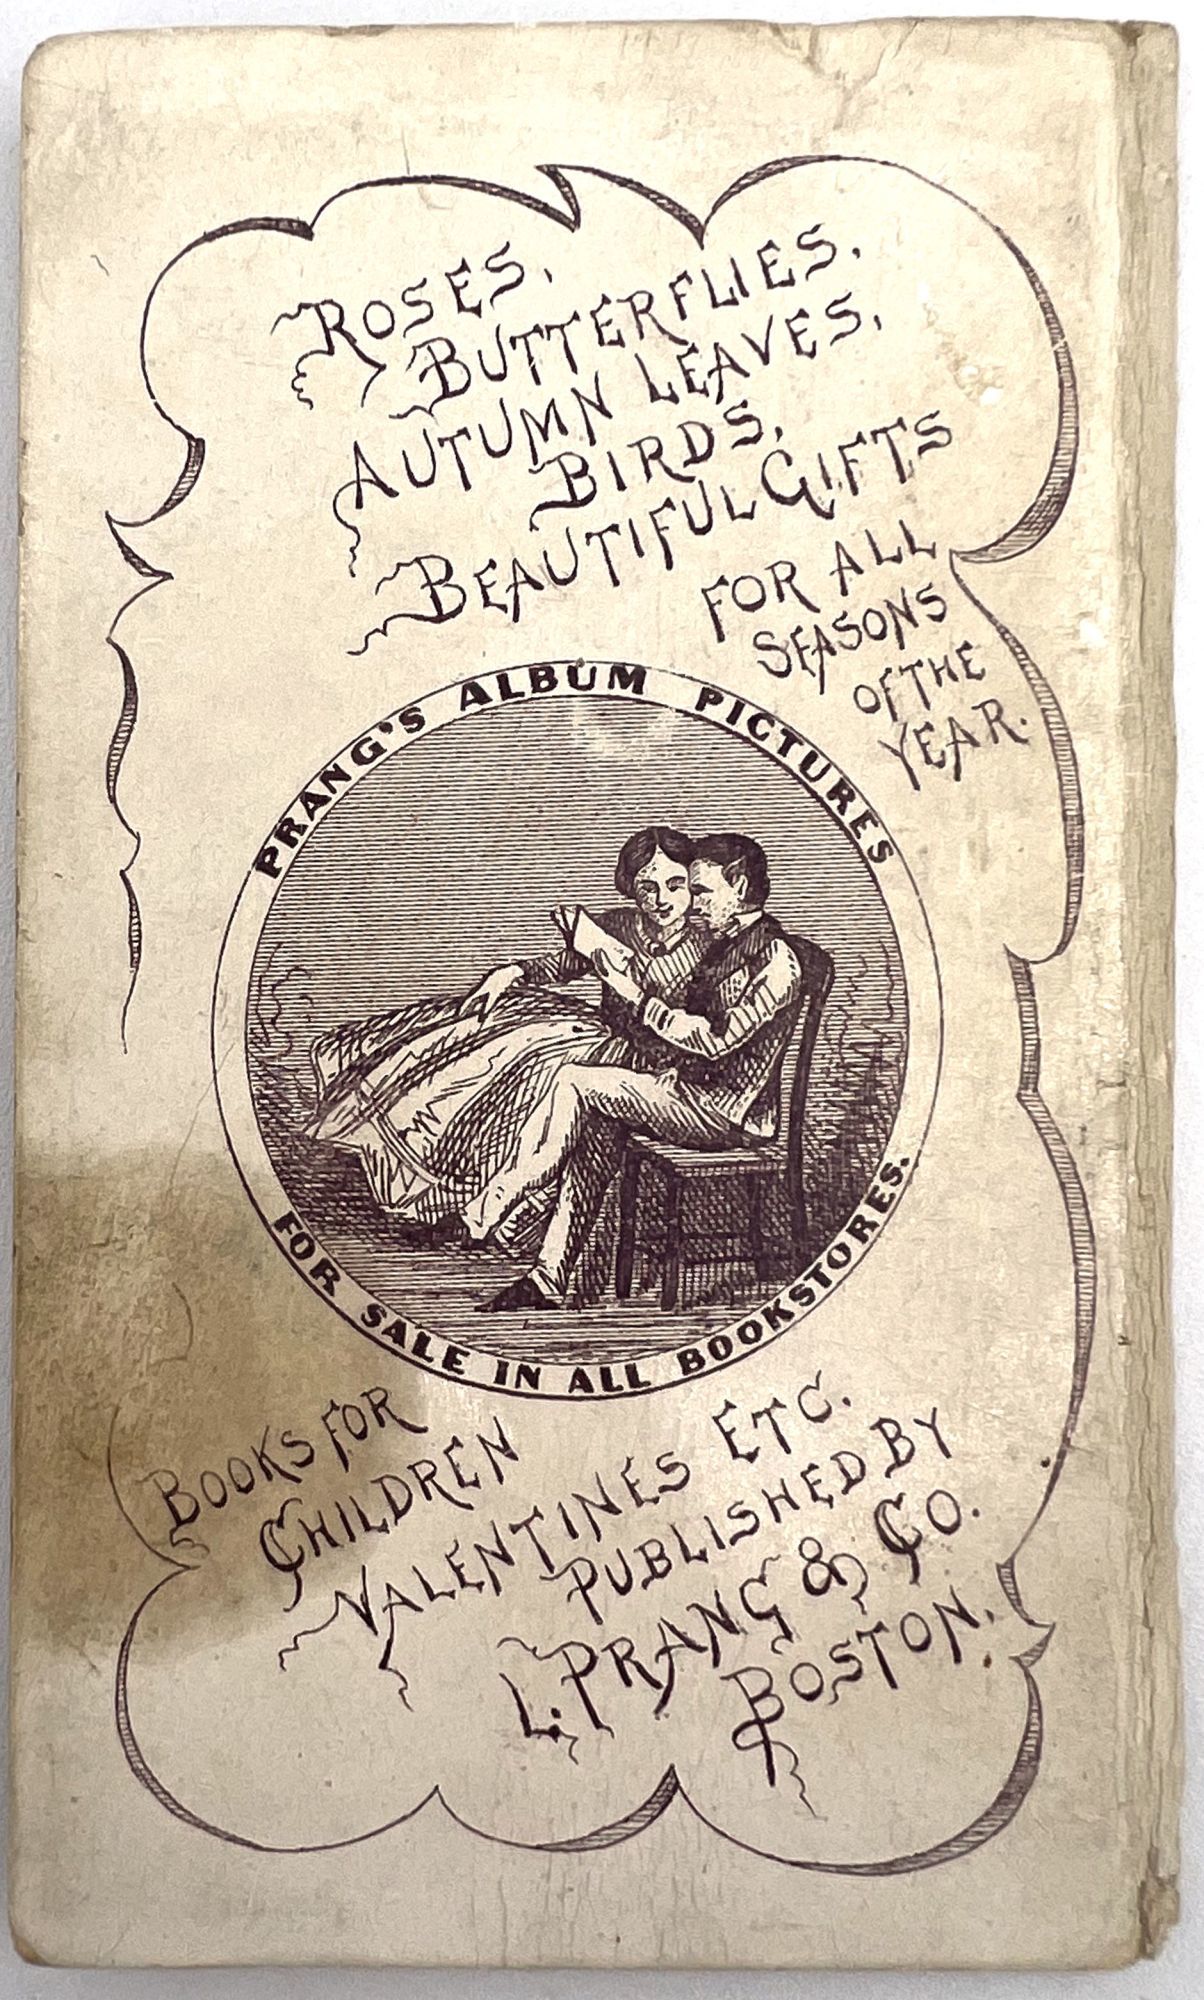 ROSES,
BUTTERFLIES.
AUTUMN LEAVES,
BIRDS,
BEAUTIFUL GIFTS
FOR ALL
SEASONS
OF THE
YEAR.
PRANG'S ALBUM PICTURES
FOR SALE IN ALL BOOKSTORES.
BOOKS FOR
CHILDREN
VALENTINES ETC.
PUBLISHED BY
L. PRANG & CO.
BOSTON.